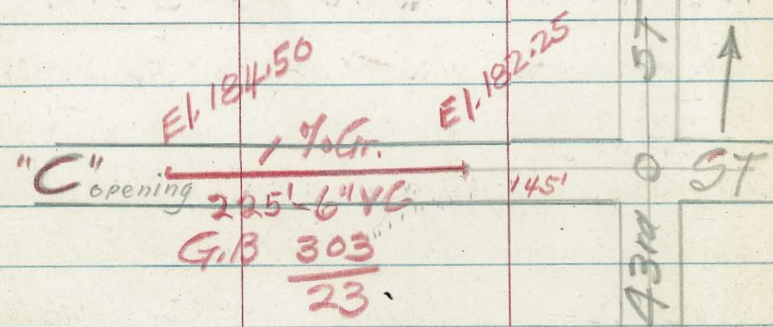 El. 184.50
El. 182.25
1 % Gr.
"C" opening
225'-6" VC
145'
ST
G.B 303
23
43rd
ST